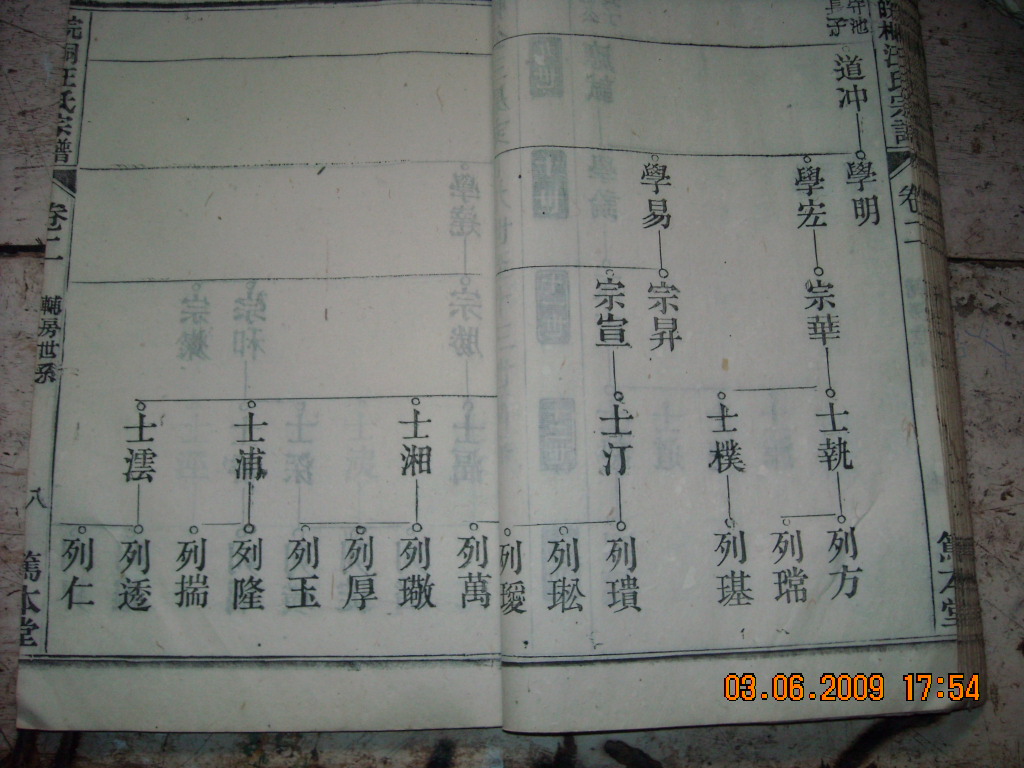 守池
長子
道冲
學明
學宏
學易
宗華
宗昇
宗宣
士執
士樸
士汀
士湘
士浦
士澐
列方
列瑺
列璂
列瑻
列玜
列璦
列萬
列璥
列厚
列玉
列隆
列揣
列透
列仁
皖桐汪氏宗譜
卷二
篤本堂
皖桐汪氏宗譜
卷二
輔房世系
八
篤本堂
03.06.2009 17:54